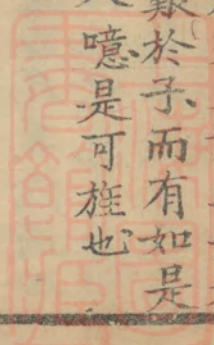 艱於子而有如是
噫是可旌也